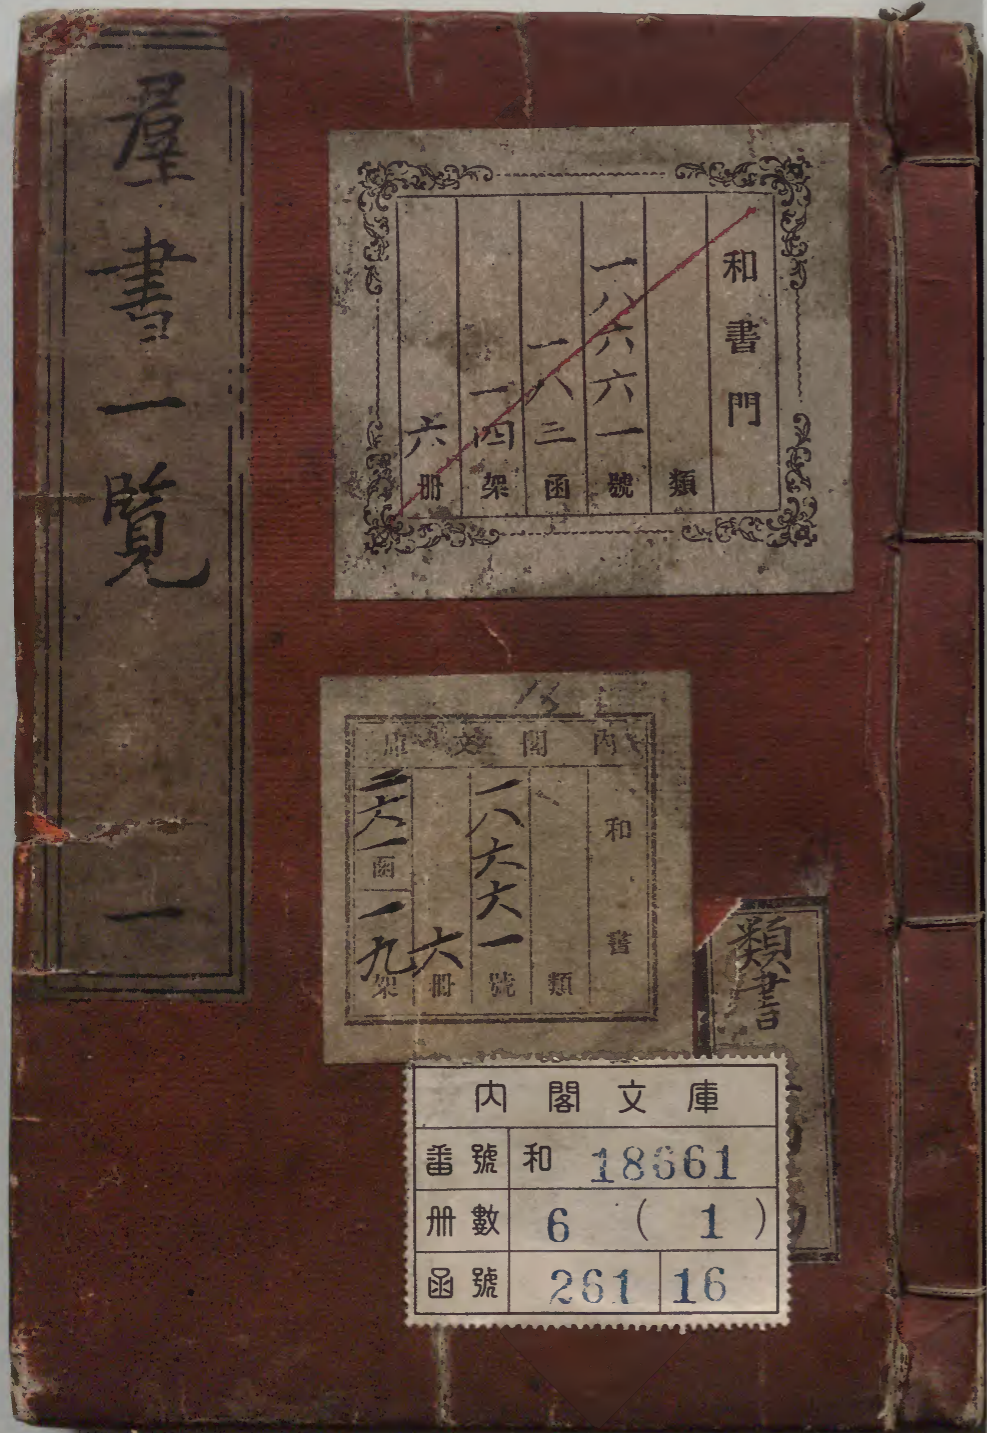 羣書一覧 一
和書門
類
一八六六一號
一八三函
一四架
六冊
内閣文庫
和書
類
一八六六一號
六冊
二六一函
一九架
類書
内閣文庫
番號 和 18661
冊數 6 ( 1 )
函號 261 16